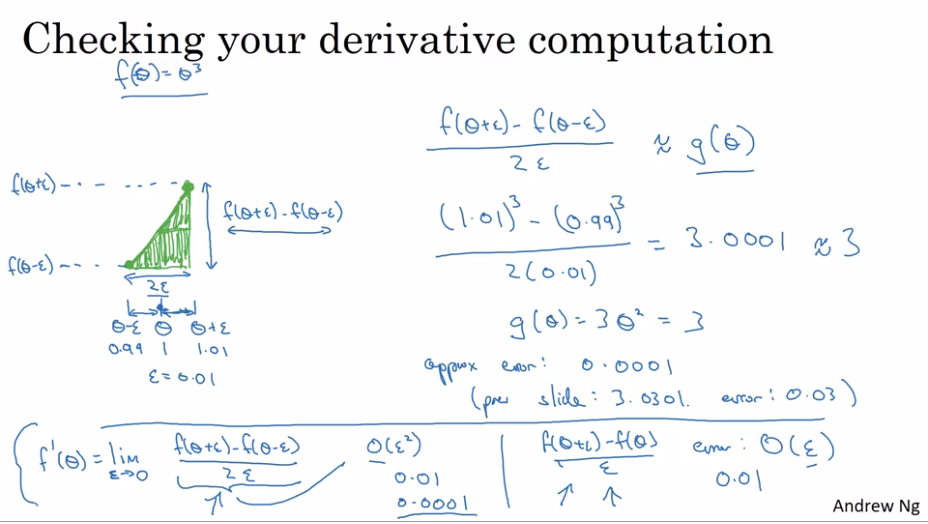 Checking your derivative computation
f(θ) = θ³
f(θ+ε) - f(θ-ε)
2ε
≈ g(θ)
f(θ+ε)
f(θ+ε) - f(θ-ε)
f(θ-ε)
(1.01)³ - (0.99)³
2(0.01)
= 3.0001 ≈ 3
2ε
θ-ε θ θ+ε
0.99 1 1.01
ε = 0.01
g(θ) = 3θ² = 3
approx error: 0.0001
(prev slide: 3.0301. error: 0.03)
f'(θ) = lim ε→0
f(θ+ε) - f(θ-ε)
2ε
O(ε²)
0.01
0.0001
f(θ+ε) - f(θ)
ε
error: O(ε)
0.01
Andrew Ng